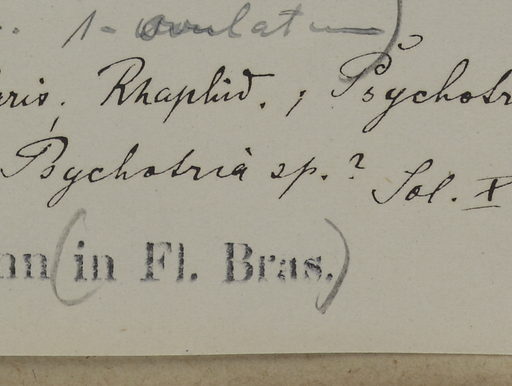 1-ovulatum)
aris. Rhaphid. ; Psychotr
Psychotria sp.? Sol. X
nn (in Fl. Bras.)